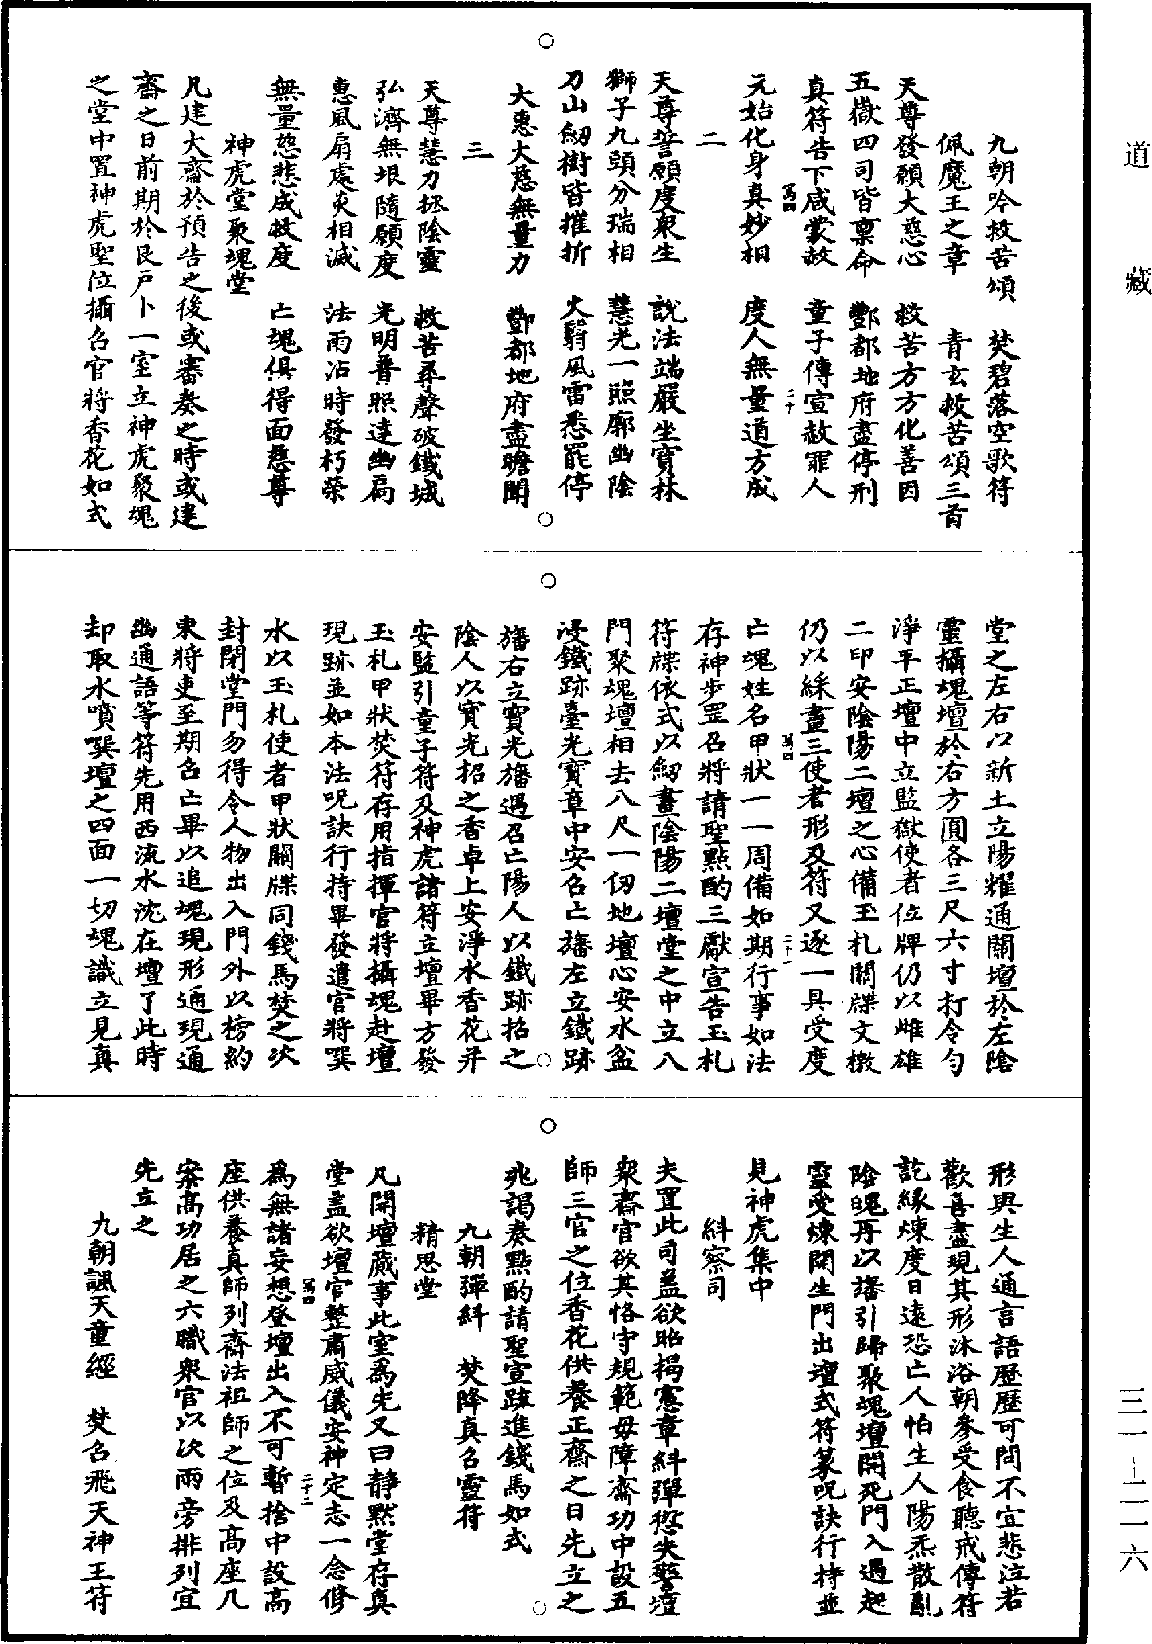 道藏
九朝吟救苦頌　焚碧落空歌符
佩魔王之章　青玄救苦頌三首
天尊發願大慈心　救苦方方化善因
五嶽四司皆禀命　酆都地府盡停刑
真符告下咸蒙赦　童子傳宣赦罪人
萬四　二十
元始化身真妙相　度人無量道方成
二
天尊誓願度衆生　說法端嚴坐寳林
獅子九頭分瑞相　慧光一照廓幽陰
刀山劒樹皆摧折　火翳風雷悉罷停
大惠大慈無量力　酆都地府盡瞻聞
三
天尊慧力拯陰靈　救苦尋聲破鐵城
弘濟無垠隨願度　光明普照達幽扃
惠風扇處炎相滅　法雨沾時發朽榮
無量慈悲咸救度　亡魂俱得面慈尊
神虎堂聚魂堂
凡建大齋於預告之後或審奏之時或建
齋之日前期於艮户卜一室立神虎聚魂
之堂中置神虎聖位攝召官將香花如式
堂之左右以新土立陽耀通關壇於左陰
靈攝魂壇於右方圓各三尺六寸打令勻
淨平正壇中立監獄使者位牌仍以雌雄
二印安陰陽二壇之心備玉札關牒文檄
仍以綵畫三使者形及符又逐一具受度
萬四　二十一
亡魂姓名甲狀一一周備如期行事如法
存神步罡召將請聖點酌三獻宣告玉札
符牒依式以劒畫陰陽二壇堂之中立八
門聚魂壇相去八尺一仞地壇心安水盆
浸鐵跡臺光寳章中安召亡旛左立鐵跡
旛右立寳光旛遇召亡陽人以鐵跡招之
陰人以寳光招之香卓上安淨水香花并
安監引童子符及神虎諸符立壇畢方發
玉札甲狀焚符存用指揮官將攝魂赴壇
現跡並如本法呪訣行持畢發遣官將噀
水以玉札使者甲狀關牒同錢馬焚之次
封閉堂門勿得令人物出入門外以榜約
束將吏至期召亡畢以追魂現形通現通
幽通語等符先用西流水沈在壇了此時
却取水噴噀壇之四面一切魂識立見真
形與生人通言語歷歷可問不宜悲泣若
歡喜盡現其形沐浴朝參受食聽戒傳符
訖緣煉度日遠恐亡人怕生人陽炁散亂
陰魄再以旛引歸聚魂壇開死門入過起
靈受煉開生門出壇式符篆呪訣行持並
見神虎集中
糾察司
夫置此司益欲昭揭憲章糾彈愆失警壇
衆齋官欲其恪守規範毋障齋功中設五
師三官之位香花供養正齋之日先立之
兆謁奏點酌請聖宣疏進錢馬如式
九朝彈糾　焚降真召靈符
精思堂
凡開壇蕆事此室爲先又曰静黙堂存真
堂盖欲壇官整肅威儀安神定志一念修
萬四　二十二
爲無諸妄想登壇出入不可暫捨中設高
座供養真師列齋法祖師之位及高座几
案高功居之六職衆官以次兩旁排列宜
先立之
九朝諷天童經　焚召飛天神王符
三一-二一六